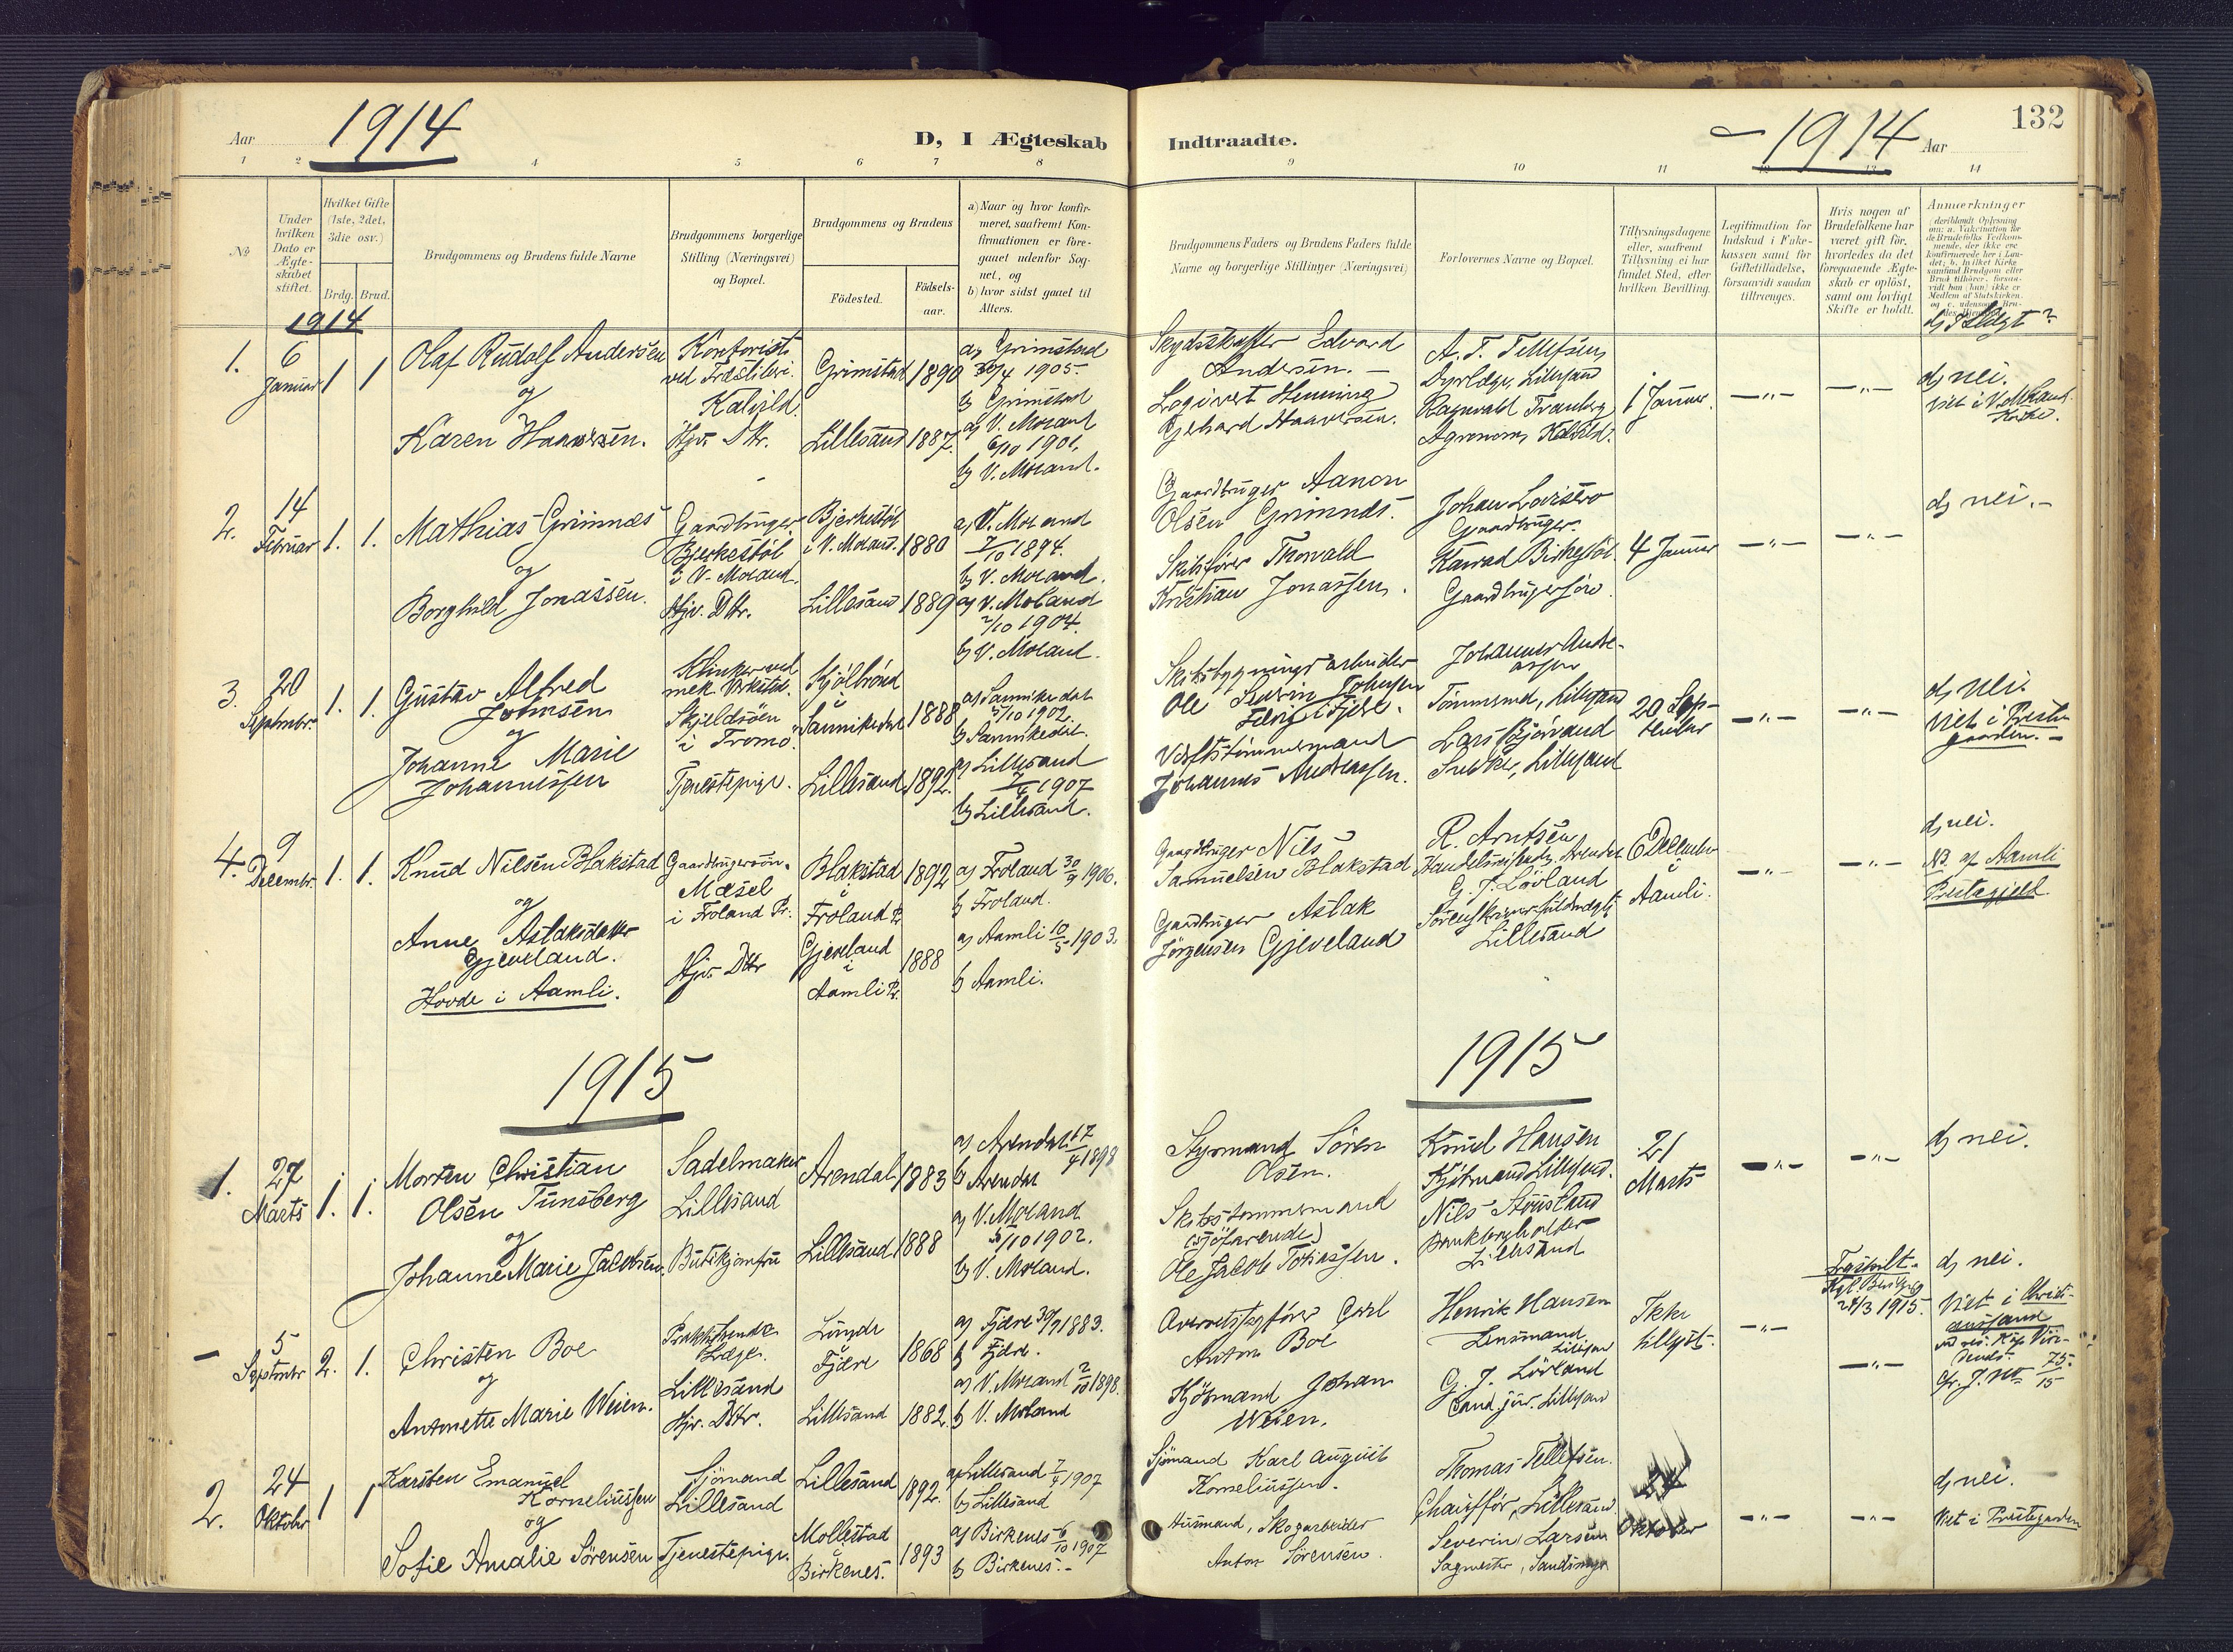 Aar
1914
D, I Ægteskab
Indtraadte.
1914
Aar
132
1 2 4 5 6 7 8
9 10 11 12 13 14
No
Under hvilken Dato er Ægteskabet stiftet.
Hvilket Gifte (1ste, 2det, 3die osv.)
Brdg. Brud.
Brudgommens og Brudens fulde Navne
Brudgommens borgerlige Stilling (Næringsvei) og Bopæl.
Brudgommens og Brudens
Fødested.
Fødsels-aar.
a) Naar og hvor konfir-
meret, saafremt Kon-
firmationen er fore-
gaaet udenfor Sog-
net, og
b) hvor sidst gaaet til
Alters.
Brudgommens Faders og Brudens Faders fulde
Navne og borgerlige Stillinger (Næringsvei)
Forlovernes Navne og Bopæl.
Tillysningsdagene
eller, saafremt
Tillysning ei har
fundet Sted, efter
hvilken Bevilling.
Legitimation for
Indskud i Enke-
kassen samt for
Giftetilladelse,
forsaavidt saadan
tiltrænges.
Hvis nogen af
Brudefolkene har
været gift før,
hvorledes da det
foregaaende Ægte-
skab er opløst,
samt om lovligt
Skifte er holdt.
Anmærkninger
1914
1.
6
Januar
1 1
Olaf Rudolf Andersen
og
Karen Haaversen.
Kontorist
Kalvild.
Hjv. Dtr.
Grimstad 1890
Lillesand 1887.
a) Grimstad
30/4 1905
b) Grimstad
a) V. Moland
6/10 1901.
b) V. Moland.
Edvard
Andersen.
Henning
Gjehard Haaversen.
A. T. Tellefsen
Dyrlæge, Lillesand
Ragnvald
Agronom, Kalvild.
1 Januar.
-"- -"-
d) nei.
2.
14
Februar
1. 1.
Mathias Grimnes
og
Borghild Jonassen.
Gaardbruger
Bjerkestøl
i V. Moland.
Hjv. Dtr.
Bjerkestøl
i V. Moland. 1880
Lillesand 1889
a) V. Moland
7/10 1894.
b) V. Moland.
a) V. Moland
2/10 1904.
b) V. Moland.
Gaardbruger Aanon
Olsen Grimnes.
Skibsfører Thorvald
Kristian Jonassen.
Johan
Gaardbruger.
Konrad Birkestøl.
Gaardbrugersøn.
4 Januar
-"- -"-
d) nei.-
3.
20
Septembr.
1. 1.
Gustav Alfred
Johnsen
og
Johanne Marie
Johannessen
Klinker ved
mek. Verksted.
Skjeldsøen
i Tromø.
Tjenestepige.
Sannikedal 1888
Lillesand 1892.
a) Sannikedal
5/10 1902.
b) Sannikedal.
a) Lillesand
7/4 1907
b) Lillesand.
Skibsbygningsarbeider
Ole
Johannes Andreassen.
Johannes Andre-
assen
Tømmermd, Lillesand
Lars Bjørvand
Snekker, Lillesand
20 Sep-
tember
-"- -"-
d) nei.
Viet i Preste-
gaarden.-
4.
9
Decembr.
1. 1.
Knud Nilsen Blakstad
og
Anne Aslaksdatter
Gjeveland.
Hovde i Aamli.
Gaardbrugersøn.
Mæsel
i Froland Pr.
Hjv. Dtr
Blakstad
i
Froland Pr. 1892
Gjeveland
i
Aamli Pr. 1888
a) Froland 30/9 1906.
b) Froland.
a) Aamli 10/5 1903.
b) Aamli.
Gaardbruger Nils
Samuelsen Blakstad
Gaardbruger Aslak
Jørgensen Gjeveland
R. Arntsen
Arendal
G. J. Løvland
Lillesand
6 December
i
Aamli.
-"- -"-
d) nei.
af Aamli
Prestegjeld
1915
1915
1.
27
Marts
1. 1.
Morten Christian
Olsen Tunsberg
og
Johanne Marie Jacobsen.
Sadelmaker
Lillesand
Butikjomfru
Arendal 1883
Lillesand 1888
a) Arendal 17/4 1898
b) Arendal
a) V. Moland
5/10 1902.
b) V. Moland.
Styrmand Søren
Olsen.
Skibstømmermand
(sjøfarende)
Ole Jacob
Knud Hansen
Kjøbmand Lillesand.
Nils
Lillesand
21
Marts
-"- -"-
d) nei.
-
5
Septembr
2. 1.
Christen Boe
og
Antonette Marie Weien.
Praktiserende
Læge.
Lillesand
Hjv. Dtr.
Fjære 1868
Lillesand 1882.
a) Fjære 30/9 1883.
b) Fjære.
a) V. Moland 2/10 1898.
b) V. Moland
Overretssagfører Carl
Anton Boe
Kjøbmand Johan
Weien.
Henrik Hansen
Lensmand,
Lillesand
G. J. Løvland
Cand. jur. Lillesand
Ikke
tillyst.
-"-
Fraskilt.
Kgl. Bevilling
24/3 1915.
-"-
d) nei.
Viet i Christi-
anssand
2.
24
Oktober
1 1
Karsten Emanuel
Korneliussen
og
Sofie Amalie Sørensen
Sjømand
Lillesand
Tjenestepige.
Lillesand 1892.
Mollestad
i
Birkenes. 1893
a) Lillesand 7/4 1907
b) Lillesand
a) Birkenes 6/10 1907
b) Birkenes.-
Sjømand Karl August
Korneliussen.
Husmand, Skogarbeider
Anton Sørensen.
Thomas Tellefsen.
Chauffør, Lillesand
Severin Larsen
Sagmester,
24
Oktober
-"- -"-
d) nei.
Viet i Prestegaarden